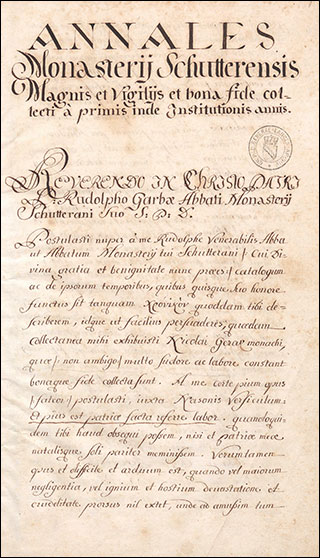 ANNALES
Monasterij Schutterensis
Magnis et Vigilijs et bona fide col-
lecti à primis inde Institutionis annis.
REVERENDO IN CHRISTO PATRI
Rudolpho Garbæ Abbati Monasterij
Schutterani Suo S. P. D.
Postulasti nuper à me Rudolphe Venerabilis Abba
ut Abbatum Monasterij tui Schutterani / Cui Di-
vina gratia et benignitate nunc præes / catalogum
ac de ipsorum temporibus, quibus quisque suo honore
functus sit tanquam Χρονικὸν quoddam tibi de-
scriberem, idque ut facilius persuaderes, quædam
Collectanea mihi exhibuisti Nicolai Gerav monachi,
quæ / non ambigo / multo sudore ac labore constant
bonaque fide collecta sunt. At me certe pium opus
/ fateor / postulasti, iuxta Nasonis Versiculum,
Et pius est patriæ facta referre labor. quamobqui-
dem tibi haud obsequi possem, nisi et patriæ meæ
natalisque soli pariter meminissem. Verumtamen
opus et difficile et arduum est, quando vel maiorum
negligentia, vel ignium et hostium devastatione et
crudelitate prorsus nil extet, unde ad amussim tum